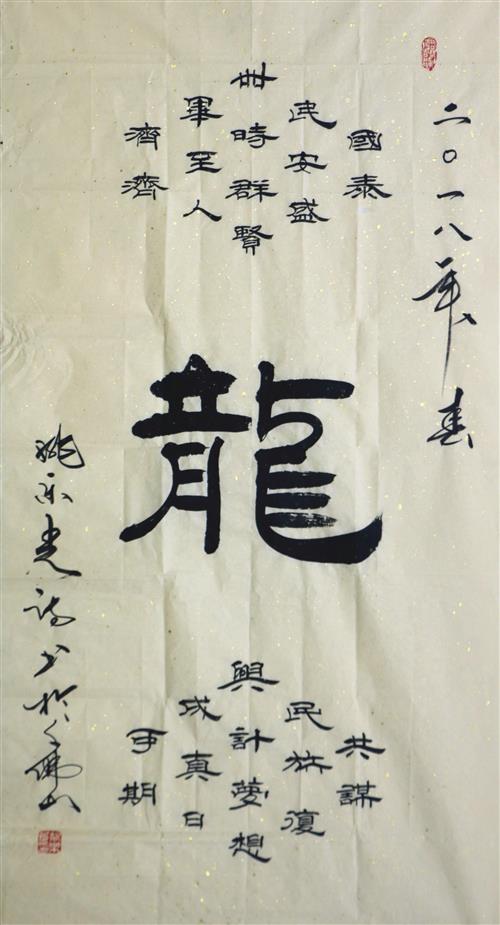 二〇一八年春
國泰
民安盛
世時群賢
畢至人
濟濟
龍
共謀
民族復
興計夢想
成真日
可期
姚光詩书於佛山